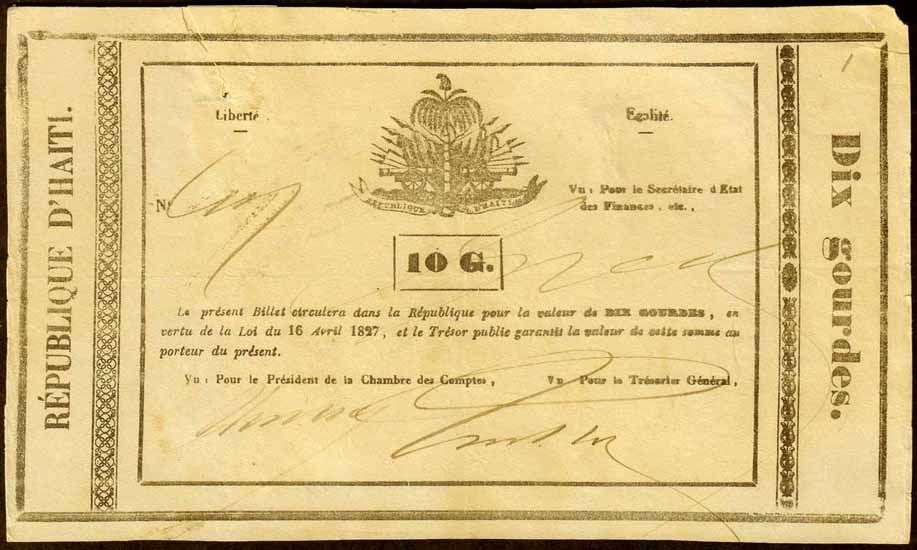 RÉPUBLIQUE D'HAITI.
Liberté
Egalité.
RÉPUBLIQUE D'HAITI
N
Vu : Pour le Secrétaire d Etat
des Finances, etc.,
10 G.
Le présent Billet circulera dans la République pour la valeur de DIX GOURDES, en
vertu de la Loi du 16 Avril 1827, et le Trésor public garantit la valeur de cette somme au
porteur du présent.
Vu : Pour le Président de la Chambre des Comptes,
Vu Pour le Trésorier Général,
Dix gourdes.